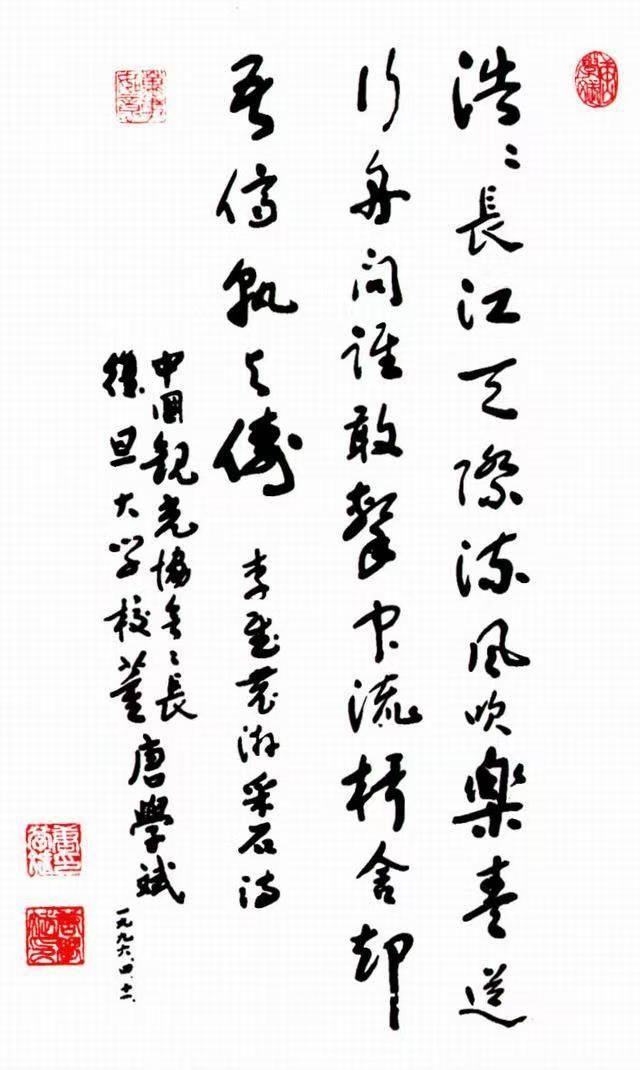 浩〻長江天際流風吹樂奏送
行舟問誰敢擊中流楫舍却
吾儕孰与儔
李 游采石诗
中國觀光協會〻長
復旦大学校董
唐學斌
一九九六.四.
萬事如意